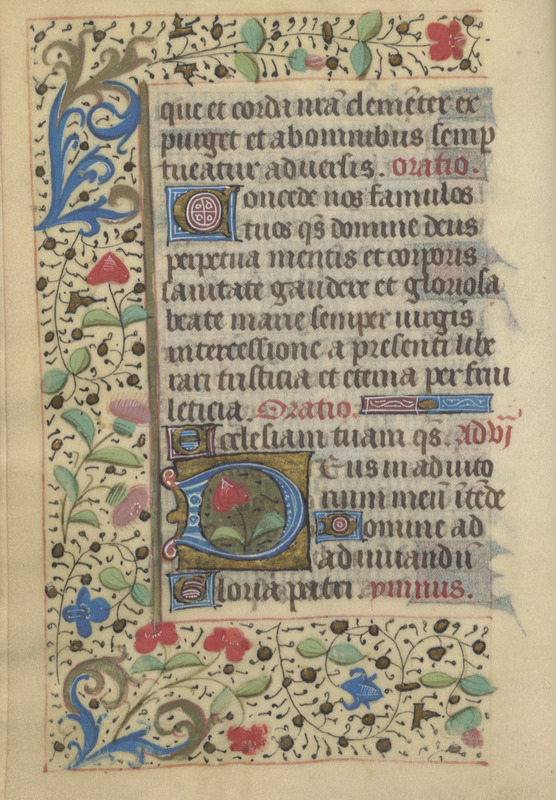 que et corda nr̄a clemēter ex
purget et ab omnibus semp
tueatur aduersis. oratio.
Concede nos famulos
tuos qs̄ domine deus
perpetua mentis et corporis
sanitate gaudere et gloriosa
beate marie semper uirgīs
intercessione a presenti libe
rari tristicia et eterna per frui
leticia. Oratio.
Ecclesiam tuam qs̄. Ad vj
Deus in adiuto
rium meū ītēde
Domine ad
adiuuandū
Gloria patri. ymnus.